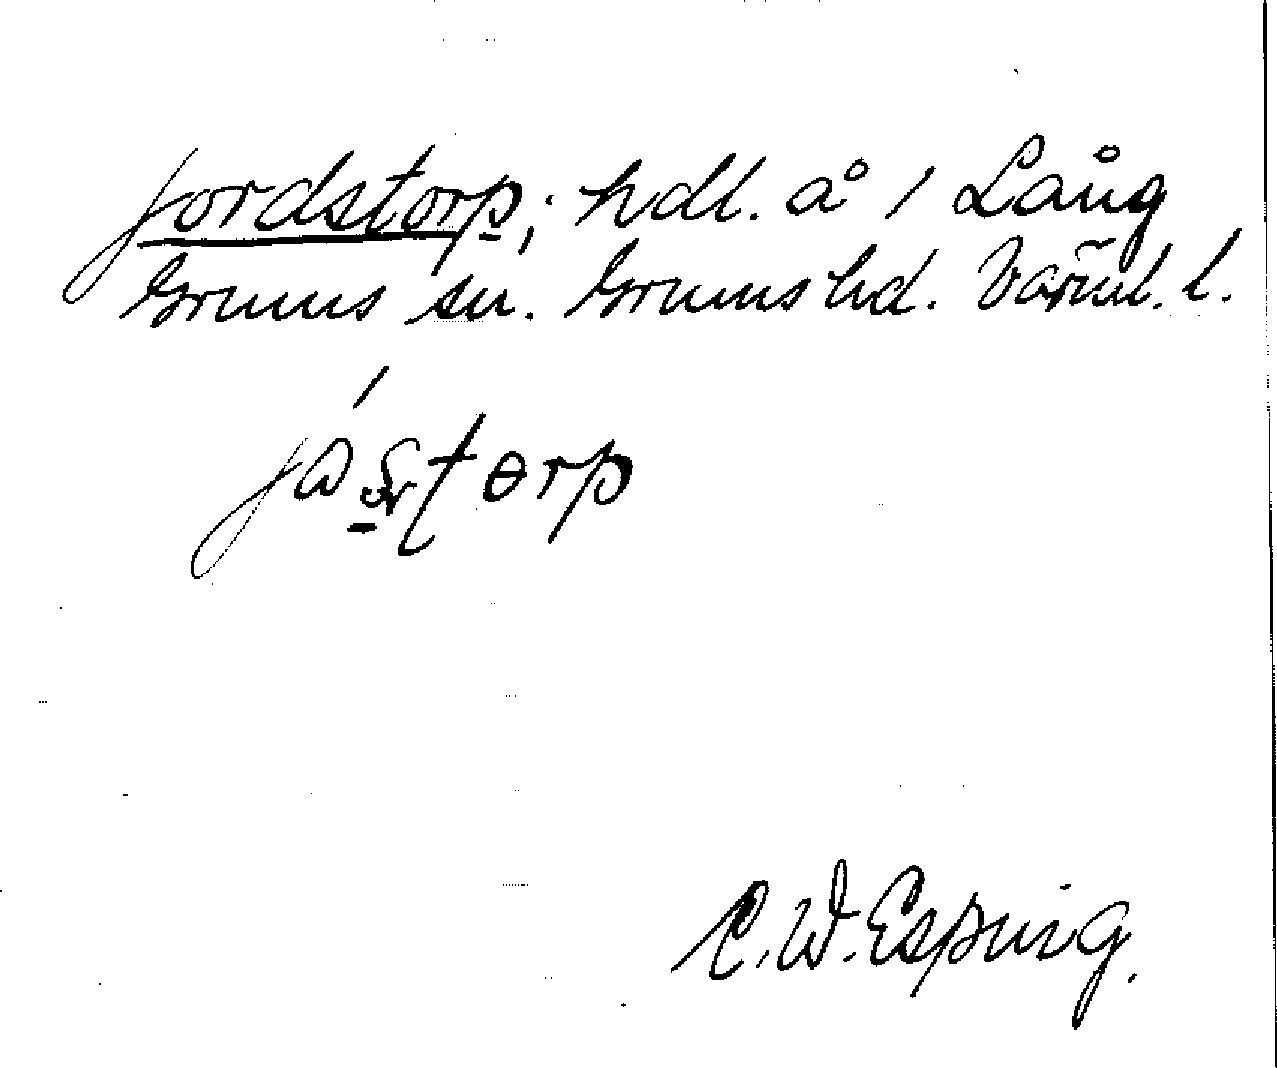 Jordstorp; hdl. å / Lång
Grums sn. Grums hd. Värml. l.
C. W. Esping.